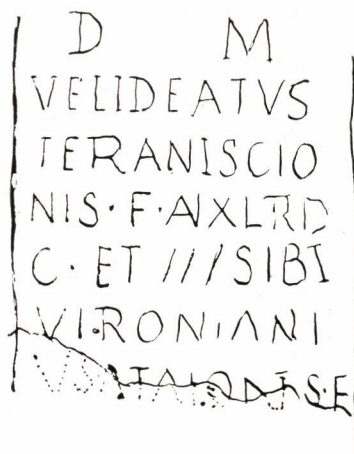 D M
VELIDEATVS
TERANISCIO
NIS · F · A
C · ET /// SIBI
VIRONIANI